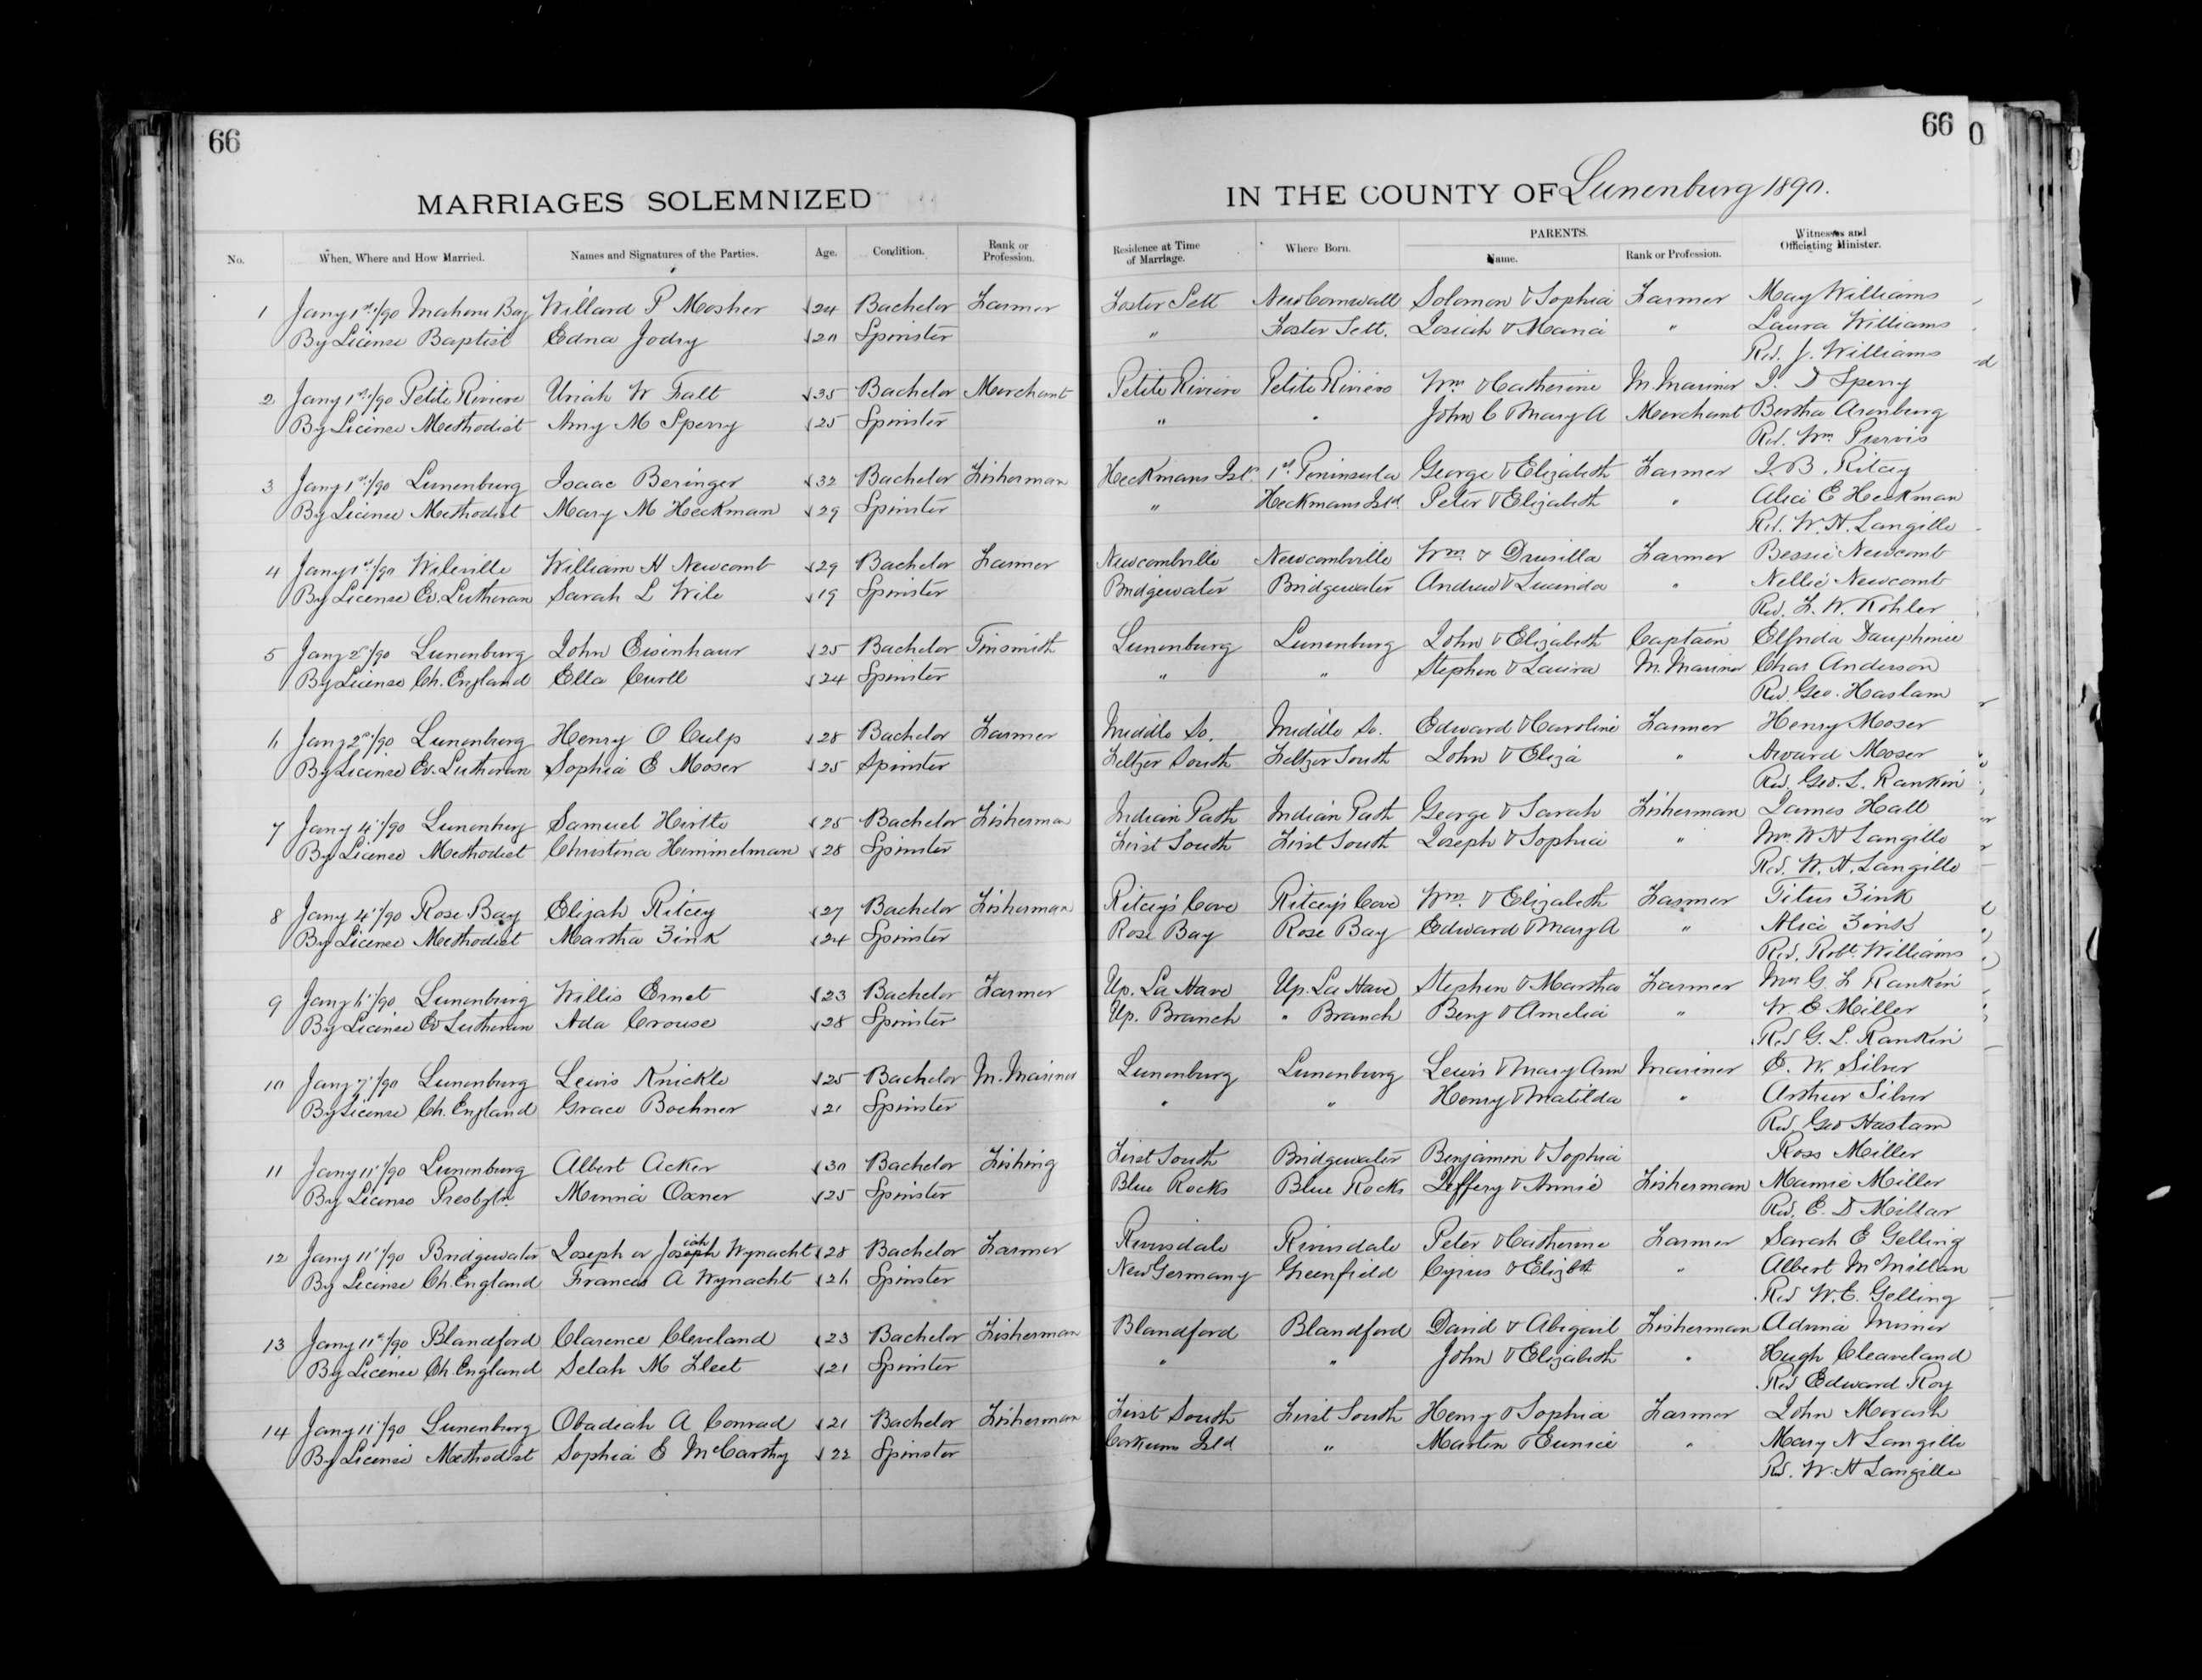 66
66
0
MARRIAGES SOLEMNIZED IN THE COUNTY OF Lunenburg 1890.
No. When, Where and How Married. Names and Signatures of the Parties. Age. Condition. Rank or Profession. Residence at Time of Marriage. Where Born. PARENTS. Name. Rank or Profession. Witnesses and Officiating Minister.
1 Jany 1st/90 Mahone Bay Willard P Mosher 24 Bachelor Farmer Foster Sett New Cornwall Solomon & Sophia Farmer May Williams
By License Baptist Edna Jodry 20 Spinster " Foster Sett. Josiah & Maria " Laura Williams
Rev. J. Williams
2 Jany 1st/90 Petite Riviere Uriah W Falt 35 Bachelor Merchant Petite Riviere Petite Riviere Wm & Catherine M. Mariner I. D Sperry
By License Methodist Amy M Sperry 25 Spinster " " John C Mary A Merchant Bertha Arenburg
Rev. Wm Purvis
3 Jany 1st/90 Lunenburg Isaac Beringer 32 Bachelor Fisherman Heckmans Isld 1st Peninsula George & Elizabeth Farmer J. B. Ritcey
By License Methodist Mary M Heckman 29 Spinster " Heckmans Isld Peter & Elizabeth " Alice E Heckman
Rev. W. H. Langille
4 Jany 1st/90 Wileville William H Newcomb 29 Bachelor Farmer Newcombville Newcombville Wm & Drusilla Farmer Bessie Newcomb
By License Ev. Lutheran Sarah L Wile 19 Spinster Bridgewater Bridgewater Andrew & Lucinda " Nellie Newcomb
Rev. F. W. Kohler
5 Jany 2d/90 Lunenburg John Eisenhaur 25 Bachelor Tinsmith Lunenburg Lunenburg John & Elizabeth Captain Elfrida Dauphinee
By License Ch. England Ella Curll 24 Spinster " " Stephen & Laura M. Mariner Chas Anderson
Rev. Geo. Haslam
6 Jany 2d/90 Lunenburg Henry O Culp 28 Bachelor Farmer Middle So. Middle So. Edward & Caroline Farmer Henry Moser
By License Ev. Lutheran Sophia E Moser 25 Spinster Feltzer South Feltzer South John & Eliza " Award Moser
Rev. Geo. L. Rankin
7 Jany 4/90 Lunenburg Samuel Hirtle 25 Bachelor Fisherman Indian Path Indian Path George & Sarah Fisherman James Hall
By License Methodist Christina Himmelman 28 Spinster First South First South Joseph & Sophia " Mrs W H Langille
Rev. W. H. Langille
8 Jany 4/90 Rose Bay Elijah Ritcey 27 Bachelor Fisherman Ritcey's Cove Ritcey's Cove Wm & Elizabeth Farmer Titus Zink
By License Methodist Martha Zink 24 Spinster Rose Bay Rose Bay Edward & Mary A " Alice Zink
Rev. Robt. Williams
9 Jany 6/90 Lunenburg Willis Ernst 23 Bachelor Farmer Up. La Have Up. La Have Stephen & Martha Farmer Mrs G. L Rankin
By License Ev Lutheran Ada Crouse 28 Spinster Up. Branch " Branch Benj & Amelia " W. E Miller
Rev G. L. Rankin
10 Jany 7/90 Lunenburg Lewis Knickle 25 Bachelor M. Mariner Lunenburg Lunenburg Lewis & Mary Ann Mariner E. W. Silver
By License Ch. England Grace Boehner 21 Spinster " " Henry & Matilda " Arthur Silver
Rev. Geo Haslam
11 Jany 11/90 Lunenburg Albert Acker 30 Bachelor Fishing First South Bridgewater Benjamin & Sophia Ross Miller
By License Presbytn. Minnie Oxner 25 Spinster Blue Rocks Blue Rocks Jeffery & Annie Fisherman Mamie Miller
Rev. E. D Millar
12 Jany 11/90 Bridgewater Joseph or Josiah Wynacht 28 Bachelor Farmer Riversdale Riversdale Peter & Catherine Farmer Sarah E Gelling
By License Ch. England Frances A Wynacht 26 Spinster New Germany Greenfield Cyrus & Elizbth " Albert McMillan
Rev W. E. Gelling
13 Jany 11/90 Blandford Clarence Cleveland 23 Bachelor Fisherman Blandford Blandford David & Abigail Fisherman Adina Misner
By License Ch. England Selah M Fleet 21 Spinster " " John & Elizabeth " Hugh Cleaveland
Rev Edward Roy
14 Jany 11/90 Lunenburg Obadiah A Conrad 21 Bachelor Fisherman First South First South Henry & Sophia Farmer John Morash
By License Methodist Sophia E McCarthy 22 Spinster Corkums Isld " Martin & Eunice " Mary N Langille
Rev. W. H Langille